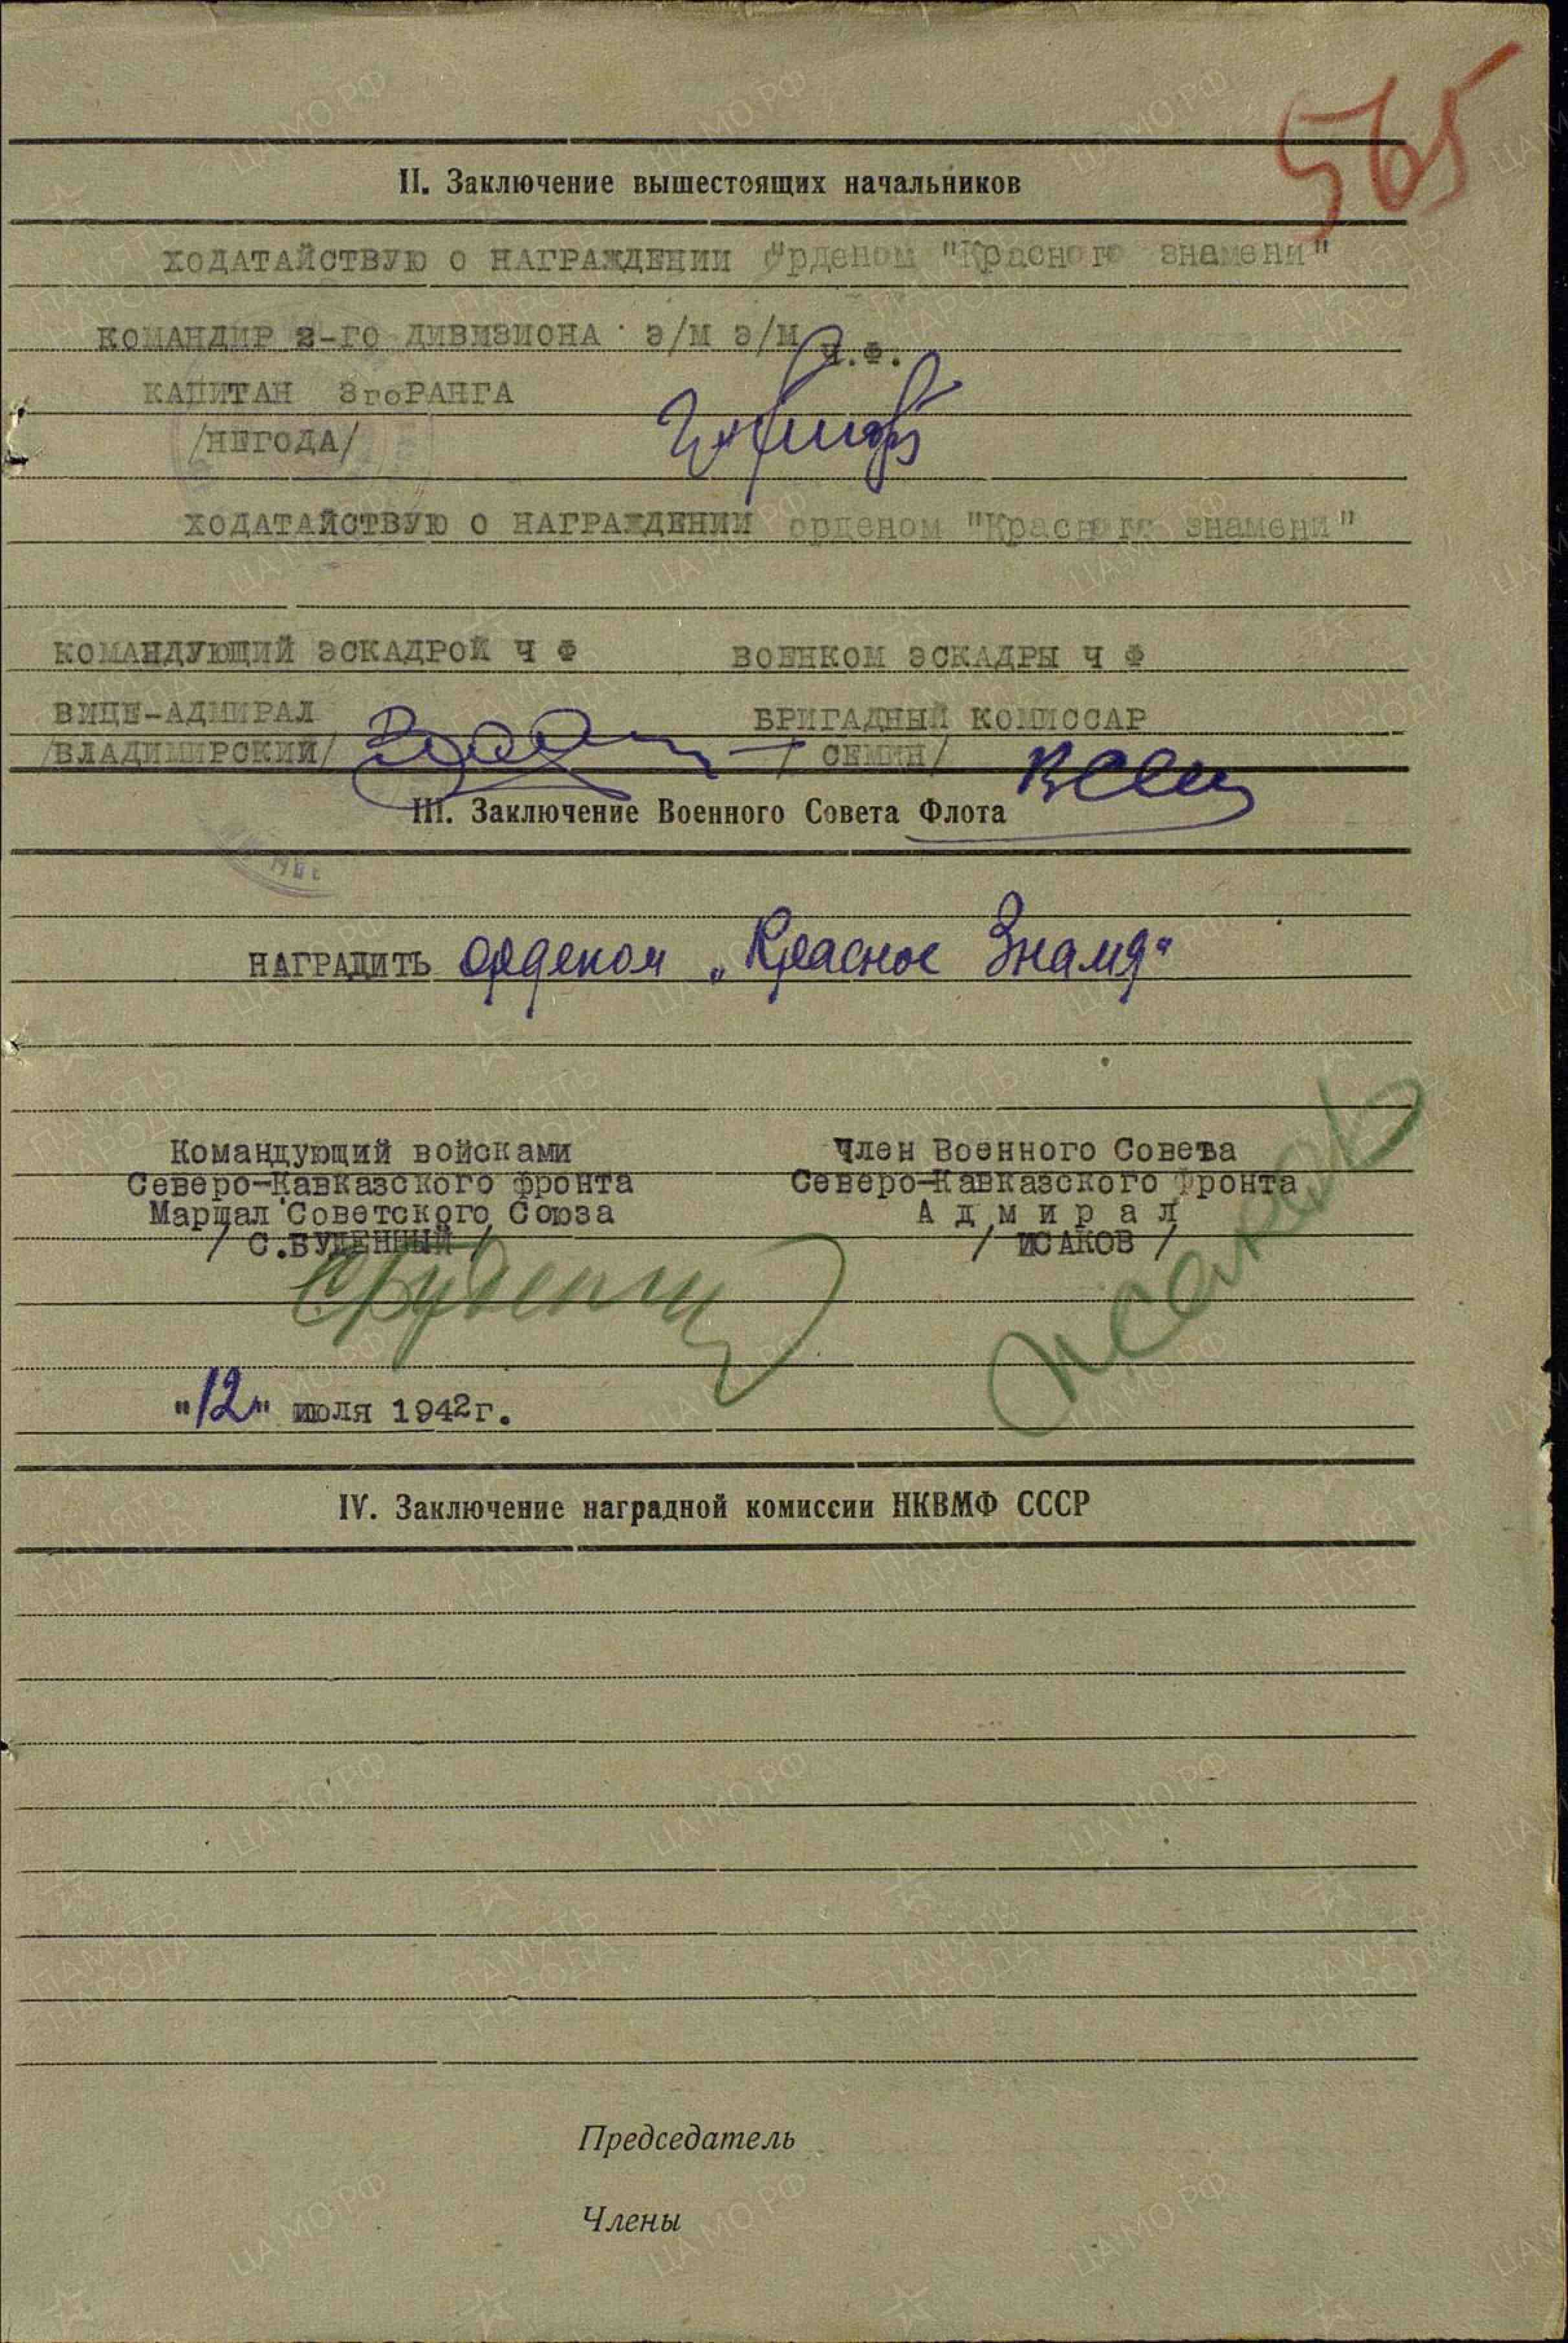 565
II. Заключение вышестоящих начальников
ХОДАТАЙСТВУЮ О НАГРАЖДЕНИИ Орденом "Красного знамени"
КОМАНДИР 2-ГО ДИВИЗИОНА Э/М Э/М Ч.Ф.
КАПИТАН 3гоРАНГА
/НЕГОДА/
ХОДАТАЙСТВУЮ О НАГРАЖДЕНИИ орденом "Красного знамени"
КОМАНДУЮЩИЙ ЭСКАДРОЙ Ч Ф ВОЕНКОМ ЭСКАДРЫ Ч Ф
ВИЦЕ-АДМИРАЛ БРИГАДНЫЙ КОМИССАР
/ВЛАДИМИРСКИЙ/ / СЕМИН/
III. Заключение Военного Совета Флота
НАГРАДИТЬ орденом „Красное Знамя“
Командующий войсками Член Военного Совета
Северо-Кавказского фронта Северо-Кавказского Фронта
Маршал Советского Союза А д м и р а л
/ С.БУДЕННЫЙ / / ИСАКОВ /
СБуденны Исаков
"12" июля 1942г.
IV. Заключение наградной комиссии НКВМФ СССР
Председатель
Члены
ПАМЯТЬ НАРОДА
ЦА МО РФ